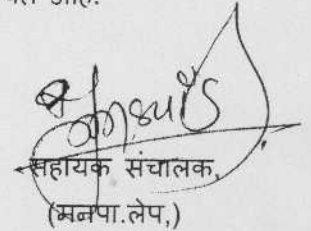 आहे.
सहायक संचालक,
(मनपा.लेप,)